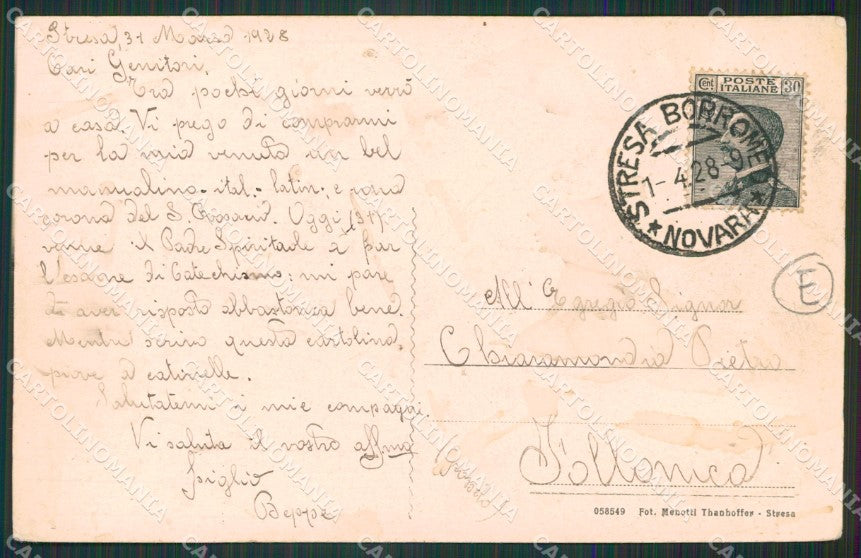 Stresa, 31 Marzo 1928
Cari Genitori,
Tra pochi giorni verrò
a casa. Vi prego di comprarmi
per la mia venuta un bel
manualino ital.- latin.; e una
corona del S. Rosario. Oggi (31)
venne il Padre Spirituale a far
l'esame di Catechismo: mi pare
d'aver risposto abbastanza bene.
Mentre scrivo questa cartolina,
piove a catinelle.
Salutatemi i miei compagni.
Vi saluta il vostro affmo
figlio
Beppe
POSTE
ITALIANE
Cent 30
STRESA BORROMEO
1-4.28-9
* NOVARA *
E
All' Egregio Signor
Chiaramondia Pietro
Follonica
(Grosseto)
058549 Fot. Menotti Thanhoffer - Stresa
CARTOLINOMANIA